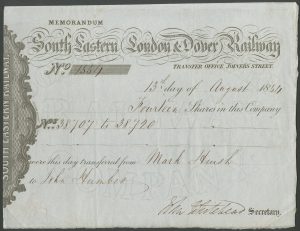 MEMORANDUM
South Eastern London & Dover Railway
TRANSFER OFFICE JOINERS STREET.
No 1557
13th day of August 1844
Fourteen Shares in this Company
Nos. 38707 to 38720
were this day transferred from Mark
to John Humber
John Secretary.
SOUTH EASTERN RAILWAY